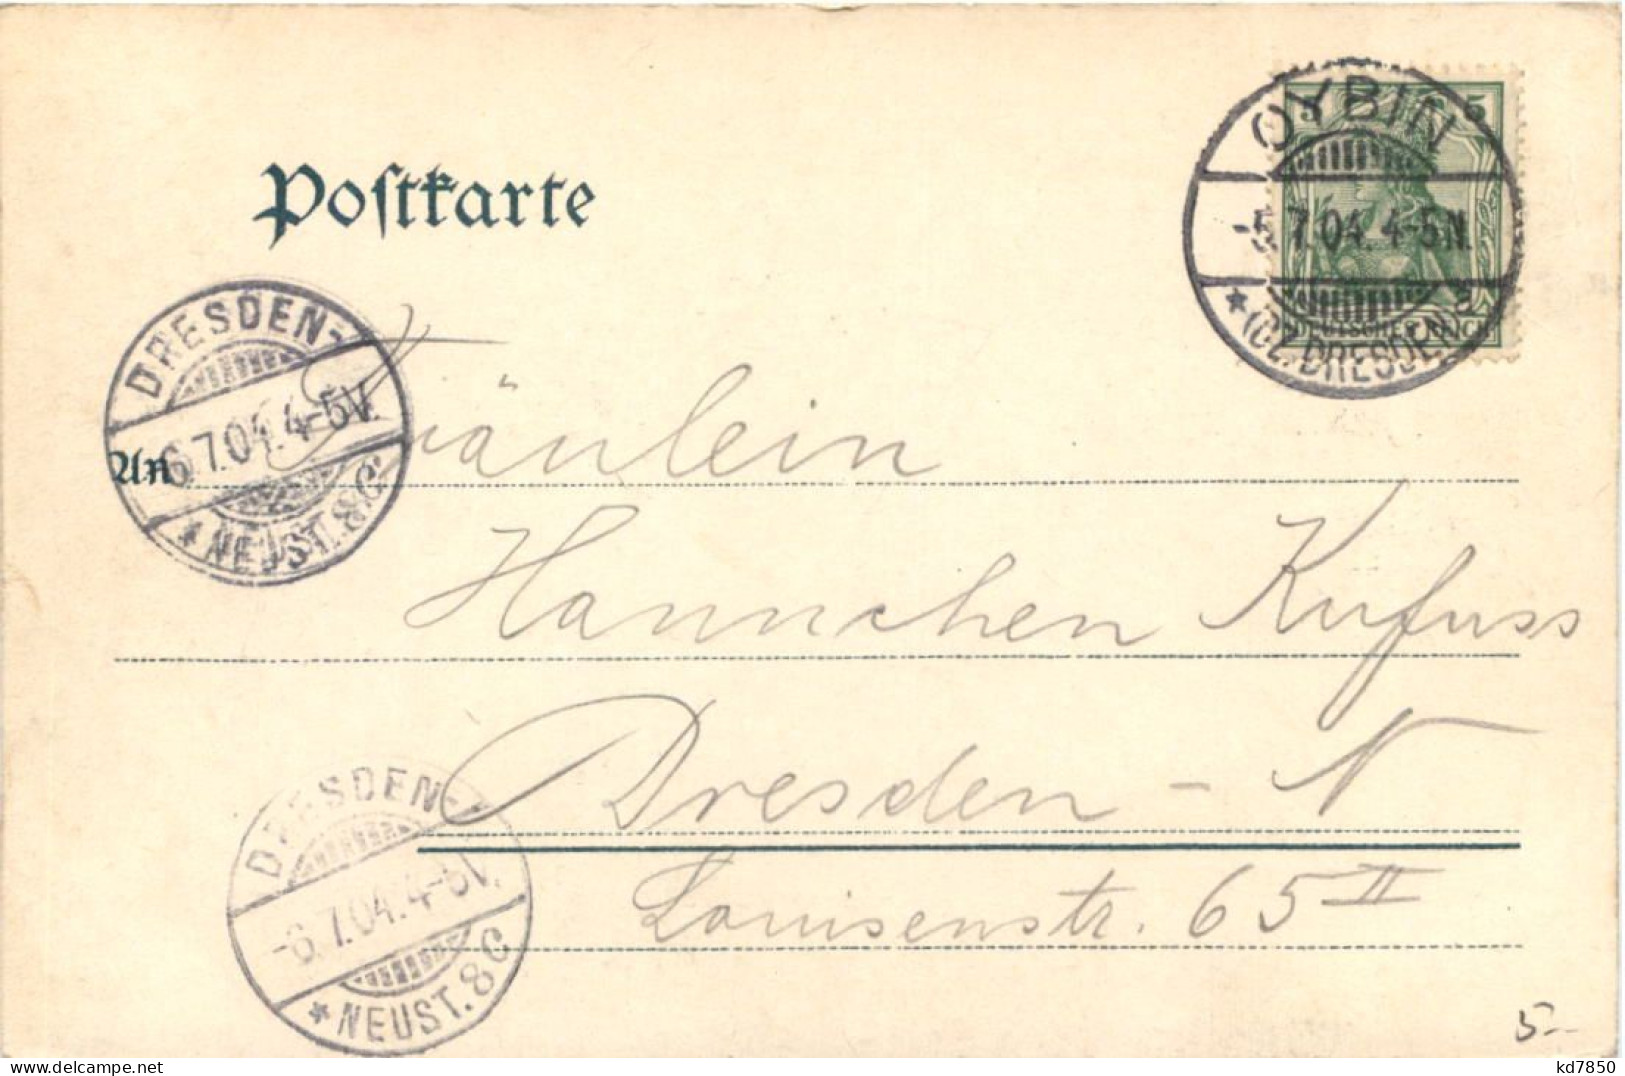 Postkarte
5 5
DEUTSCHES REICH
OYBIN
-5.7.04.4-5N.
* (BZ. DRESDEN) a
DRESDEN-
6.7.04.4-5V.
* NEUST. 8c
An Fräulein
Hannchen Kufuss
Dresden - N
Louisenstr. 65 II
DRESDEN-
-6.7.04.4-5V.
* NEUST. 8c
5.-
delcampe.net
kd7850